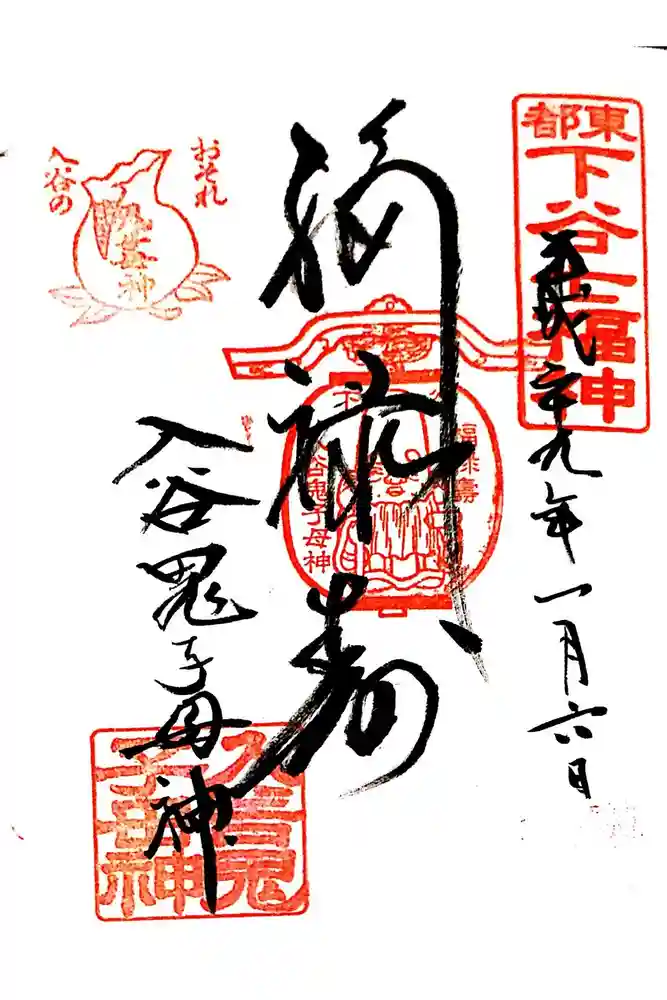 東都
下谷七福神
平成二十九年一月六日
おそれ
入谷の
鬼子母神
福禄壽
福禄壽
入谷鬼子母神
入谷鬼子母神
入谷鬼子母神